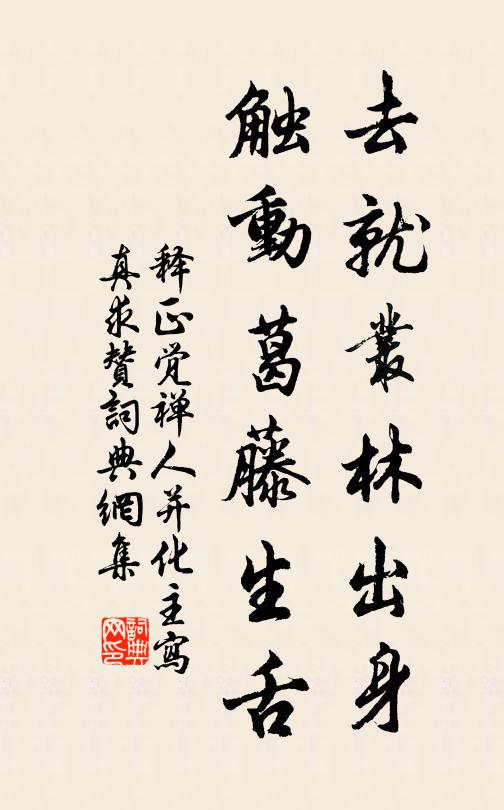 去就叢林出身
触動葛藤生舌
释正觉禅人并化主寫
真求赞詞典網集
詞典网印